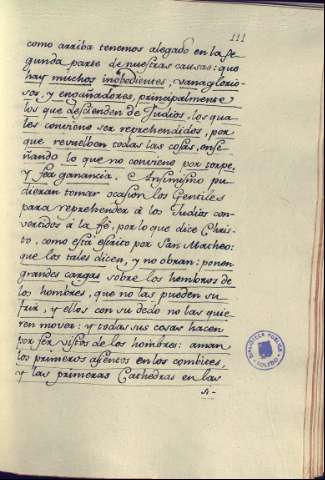 111
como arriba tenemos alegado en la se
gunda parte de nuestras causas: que
hay muchos inobedientes, vanaglorio-
sos, y engañadores, principalmente
los que descienden de Judios. los qua
les conviene ser reprehendidos, por
que revuelben todas las cosas, ense
ñando lo que no conviene por torpe,
y fea ganancia. Ansimismo pu
dieran tomar ocasion los Gentiles
para reprehender à los Judios con-
vertidos à la fé, por lo que dice Chris-
to, como está escrito por San Matheo:
que los tales dicen, y no obran: ponen
grandes cargas sobre los hombros de
los hombres, que no las pueden su
frir, y ellos con su dedo no las quie
ren mover: y todas sus cosas hacen
por ser vistos de los hombres: aman
los primeros asientos en los combites,
y las primeras Cathedras en las
BIBLIOTECA PUBLICA
TOLEDO